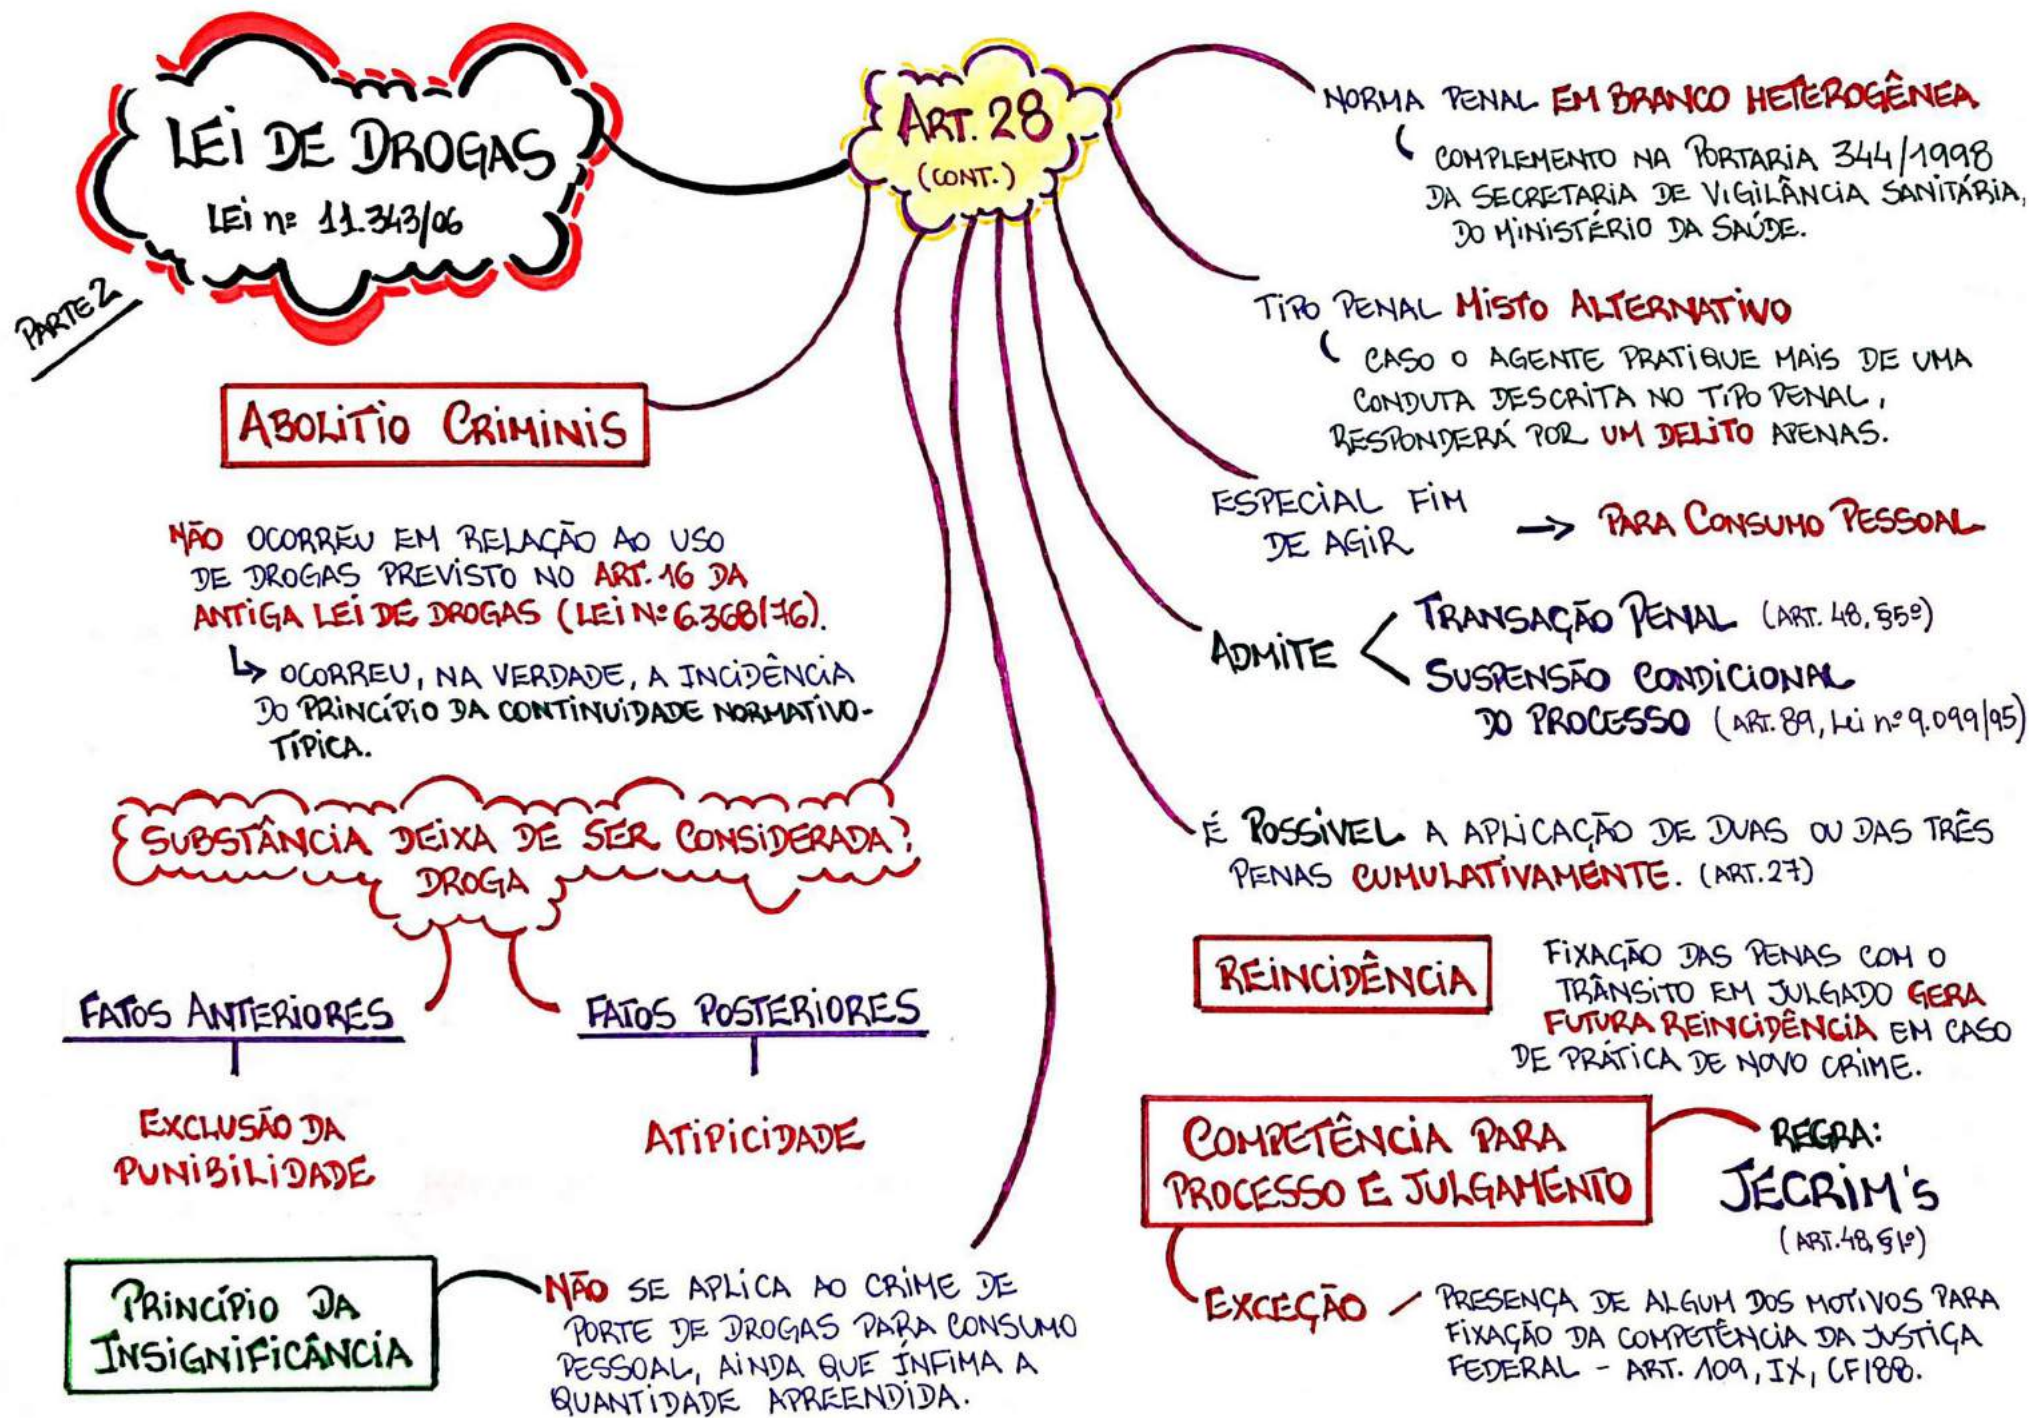 LEI DE DROGAS
LEI nº 11.343/06
PARTE 2
ART. 28
(CONT.)
NORMA PENAL EM BRANCO HETEROGÊNEA
COMPLEMENTO NA PORTARIA 344/1998
DA SECRETARIA DE VIGILÂNCIA SANITÁRIA,
DO MINISTÉRIO DA SAÚDE.
TIPO PENAL MISTO ALTERNATIVO
CASO O AGENTE PRATIQUE MAIS DE UMA
CONDUTA DESCRITA NO TIPO PENAL,
RESPONDERÁ POR UM DELITO APENAS.
ESPECIAL FIM
DE AGIR
→ PARA CONSUMO PESSOAL
ADMITE
TRANSAÇÃO PENAL (ART. 48, §5º)
SUSPENSÃO CONDICIONAL
DO PROCESSO (ART. 89, Lei nº 9.099/95)
É POSSÍVEL A APLICAÇÃO DE DUAS OU DAS TRÊS
PENAS CUMULATIVAMENTE. (ART. 27)
REINCIDÊNCIA
FIXAÇÃO DAS PENAS COM O
TRÂNSITO EM JULGADO GERA
FUTURA REINCIDÊNCIA EM CASO
DE PRÁTICA DE NOVO CRIME.
COMPETÊNCIA PARA
PROCESSO E JULGAMENTO
REGRA:
JECRIM'S
(ART. 48, §1º)
EXCEÇÃO
PRESENÇA DE ALGUM DOS MOTIVOS PARA
FIXAÇÃO DA COMPETÊNCIA DA JUSTIÇA
FEDERAL - ART. 109, IX, CF/88.
ABOLITIO CRIMINIS
NÃO OCORREU EM RELAÇÃO AO USO
DE DROGAS PREVISTO NO ART. 16 DA
ANTIGA LEI DE DROGAS (LEI Nº 6.368/76).
↳ OCORREU, NA VERDADE, A INCIDÊNCIA
DO PRINCÍPIO DA CONTINUIDADE NORMATIVO-
TÍPICA.
SUBSTÂNCIA DEIXA DE SER CONSIDERADA
DROGA
FATOS ANTERIORES
EXCLUSÃO DA
PUNIBILIDADE
FATOS POSTERIORES
ATIPICIDADE
PRINCÍPIO DA
INSIGNIFICÂNCIA
NÃO SE APLICA AO CRIME DE
PORTE DE DROGAS PARA CONSUMO
PESSOAL, AINDA QUE ÍNFIMA A
QUANTIDADE APREENDIDA.